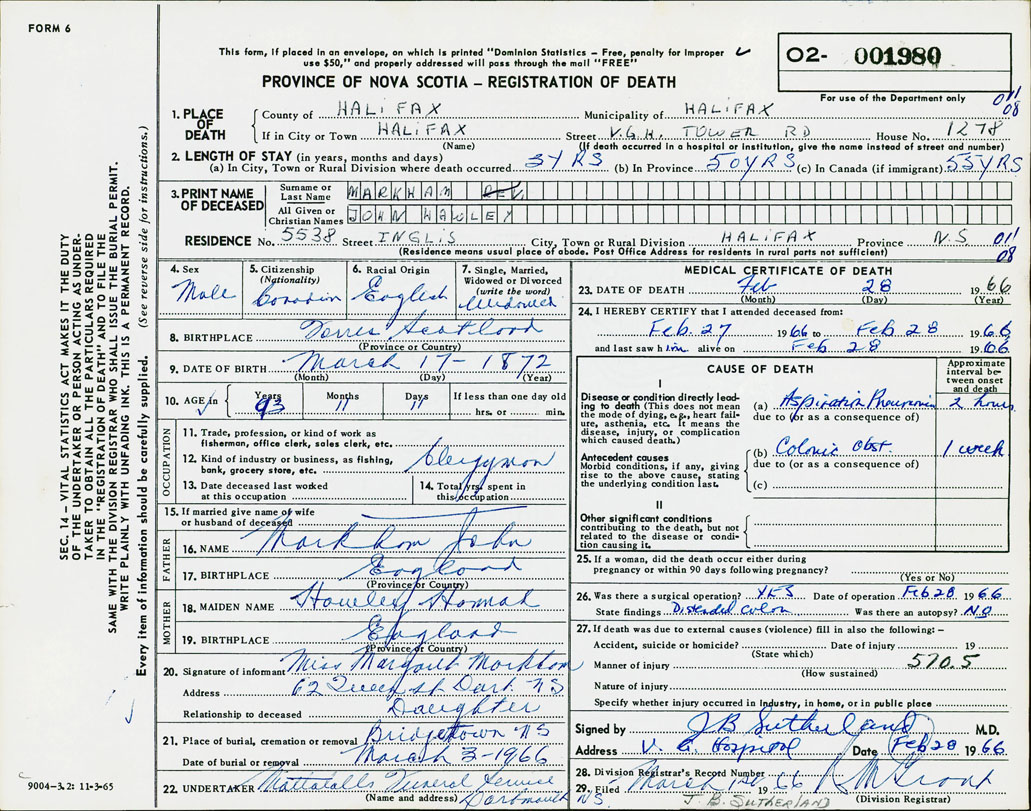 FORM 6
This form, if placed in an envelope, on which is printed "Dominion Statistics – Free, penalty for improper
use $50," and properly addressed will pass through the mail "FREE"
PROVINCE OF NOVA SCOTIA – REGISTRATION OF DEATH
02- 001980
For use of the Department only
011
08
1. PLACE OF DEATH
County of HALIFAX Municipality of HALIFAX
If in City or Town HALIFAX Street V.G.H. TOWER RD House No. 1278
(Name) (If death occurred in a hospital or institution, give the name instead of street and number)
2. LENGTH OF STAY (in years, months and days)
(a) In City, Town or Rural Division where death occurred 3 YRS (b) In Province 50 YRS (c) In Canada (if immigrant) 55 YRS
3. PRINT NAME OF DECEASED
Surname or Last Name MARKHAM REV.
All Given or Christian Names JOHN HAWLEY
RESIDENCE No. 5538 Street INGLIS City, Town or Rural Division HALIFAX Province N.S. 011
(Residence means usual place of abode. Post Office Address for residents in rural parts not sufficient) 08
4. Sex Male
5. Citizenship (Nationality)
6. Racial Origin English
7. Single, Married, Widowed or Divorced (write the word)
8. BIRTHPLACE Scotland
(Province or Country)
9. DATE OF BIRTH March 17 - 1872
(Month) (Day) (Year)
10. AGE in Years 93 Months 11 Days 11 If less than one day old
hrs. or min.
OCCUPATION
11. Trade, profession, or kind of work as
fisherman, office clerk, sales clerk, etc.
12. Kind of industry or business, as fishing,
bank, grocery store, etc.
Clergyman
13. Date deceased last worked
at this occupation
14. Total yrs. spent in
this occupation
15. If married give name of wife
or husband of deceased
FATHER
16. NAME Markham John
17. BIRTHPLACE England
(Province or Country)
MOTHER
18. MAIDEN NAME Hawley Hannah
19. BIRTHPLACE England
(Province or Country)
20. Signature of informant Miss Margaret Markham
Address 62 Queen st Dart. NS
Relationship to deceased Daughter
21. Place of burial, cremation or removal Bridgetown NS
Date of burial or removal March 3 - 1966
22. UNDERTAKER Mattatalls Funeral Service
(Name and address) Dartmouth NS
MEDICAL CERTIFICATE OF DEATH
23. DATE OF DEATH Feb 28 1966
(Month) (Day) (Year)
24. I HEREBY CERTIFY that I attended deceased from:
Feb. 27 1966 to Feb. 28 1966
and last saw him alive on Feb 28 1966
CAUSE OF DEATH
Approximate interval between onset and death
I
Disease or condition directly leading to death (This does not mean the mode of dying, e.g., heart failure, asthenia, etc. It means the disease, injury, or complication which caused death.)
(a) Aspiration Pneumonia 2 hours
due to (or as a consequence of)
Antecedent causes
Morbid conditions, if any, giving rise to the above cause, stating the underlying condition last.
(b) Colonic Obst. 1 week
due to (or as a consequence of)
(c)
II
Other significant conditions
contributing to the death, but not related to the disease or condition causing it.
25. If a woman, did the death occur either during
pregnancy or within 90 days following pregnancy?
(Yes or No)
26. Was there a surgical operation? YES Date of operation Feb 28 1966
State findings Distended Colon Was there an autopsy? NO
27. If death was due to external causes (violence) fill in also the following: –
Accident, suicide or homicide? Date of injury 19
(State which)
Manner of injury 570.5
(How sustained)
Nature of injury
Specify whether injury occurred in industry, in home, or in public place
Signed by J B Sutherland M.D.
Address V. G. Hospital Date Feb 28 1966
28. Division Registrar's Record Number
29. Filed March 1966
(Division Registrar)
J. B. SUTHERLAND
SEC. 14 – VITAL STATISTICS ACT MAKES IT THE DUTY
OF THE UNDERTAKER OR PERSON ACTING AS UNDER-
TAKER TO OBTAIN ALL THE PARTICULARS REQUIRED
IN THE "REGISTRATION OF DEATH" AND TO FILE THE
SAME WITH THE DIVISION REGISTRAR WHO SHALL ISSUE THE BURIAL PERMIT.
WRITE PLAINLY WITH UNFADING INK. THIS IS A PERMANENT RECORD.
Every item of information should be carefully supplied. (See reverse side for instructions.)
9004-3.2: 11-3-65